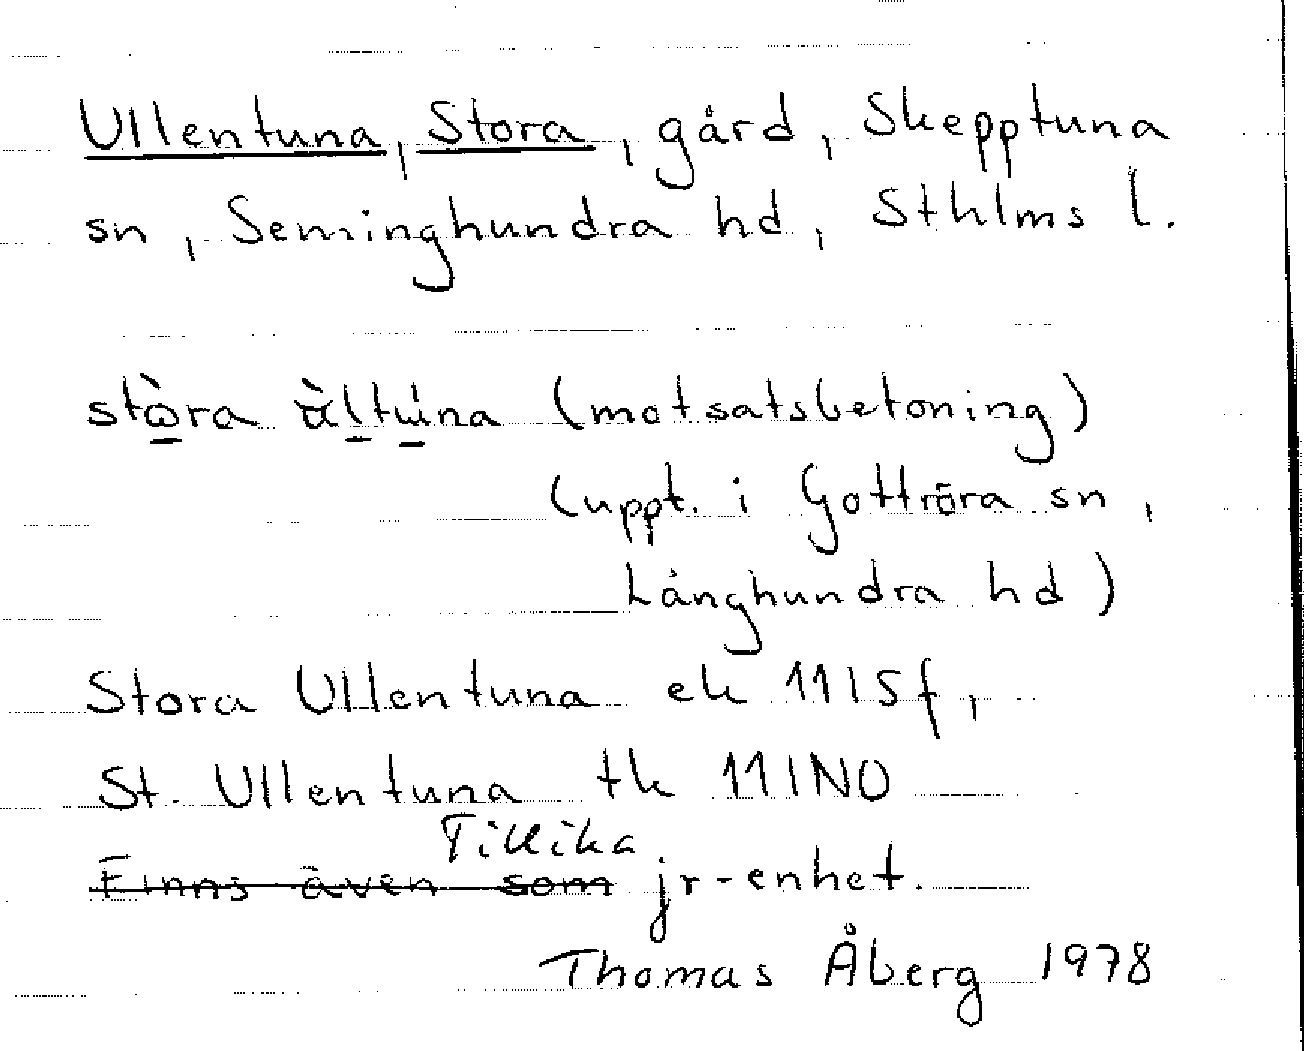 Ullentuna, Stora, gård, Skepptuna
sn, Seminghundra hd, Sthlms l.
stò̱ra ä̀ḻtú̱na (motsatsbetoning)
(uppt. i Gottröra sn,
Långhundra hd)
Stora Ullentuna ek 11I5f,
St. Ullentuna tk 11INO
Tillika
Finns även som jr-enhet.
Thomas Åberg 1978